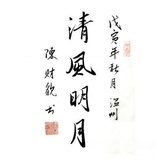 戊寅年秋月温州
清風明月
陳財銘书